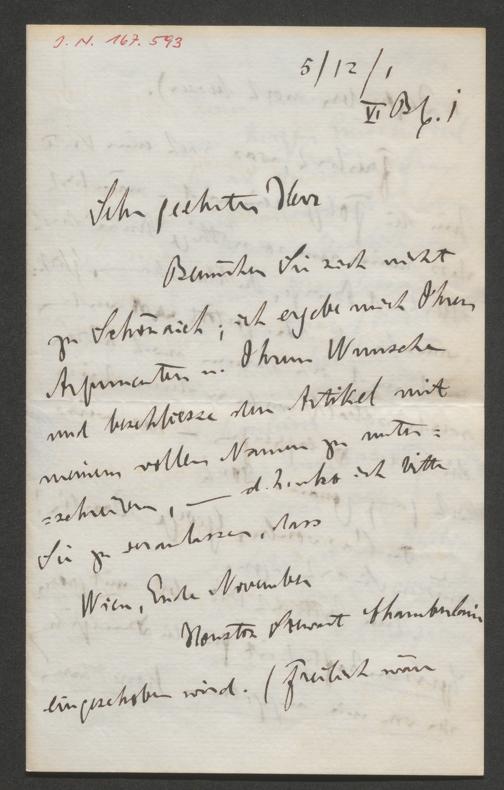 J. N. 167.593
5/12/1
VI
Sehr geehrter Herr
Bemühen Sie sich nicht
zu Schönaich; ich ergebe mich Ihren
Argumenten u. Ihrem Wunsche
und beschliesse den Artikel mit
meinem vollen Namen zu unter=
=schreiben, — d. h. ich bitte
Sie zu veranlassen, dass
Wien, Ende November
Houston Stewart Chamberlain
eingeschoben wird. (Freilich wäre